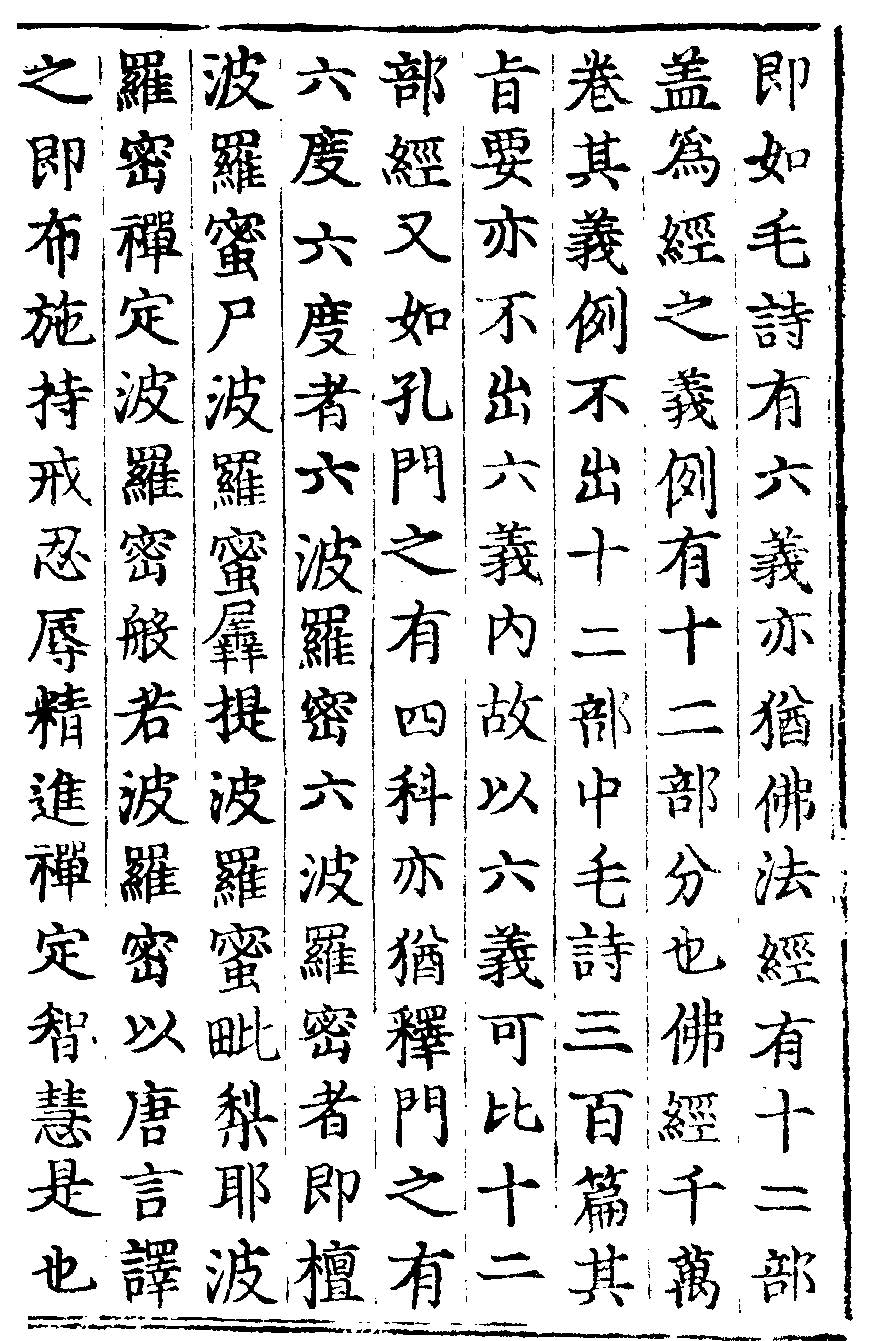 即如毛詩有六義亦猶佛法經有十二部
盖爲經之義例有十二部分也佛經千萬
卷其義例不出十二部中毛詩三百篇其
㫖要亦不出六義内故以六義可比十二
部經又如孔門之有四科亦猶釋門之有
六度六度者六波羅密六波羅密者即檀
波羅蜜尸波羅蜜羼提波羅蜜毗梨耶波
羅密禪定波羅密般若波羅密以唐言譯
之即布施持戒忍辱精進禪定智慧是也